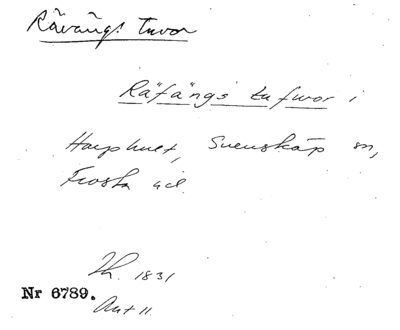 Rävängs tuvor
Räfängs tufwor i
Harphult, Svensköp sn,
Frosta hd.
1831
Nr 6789.
Ant 11.